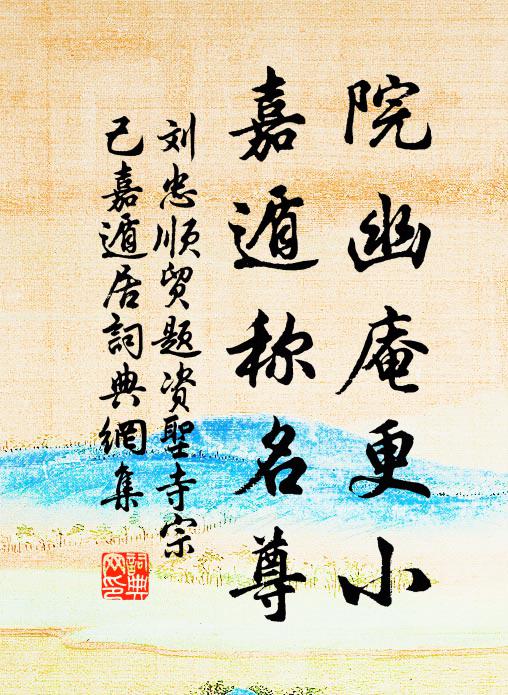 院幽庵更小
嘉遁称名尊
刘忠顺贸题资聖寺宗
己嘉遁居詞典網集
詞典
网印